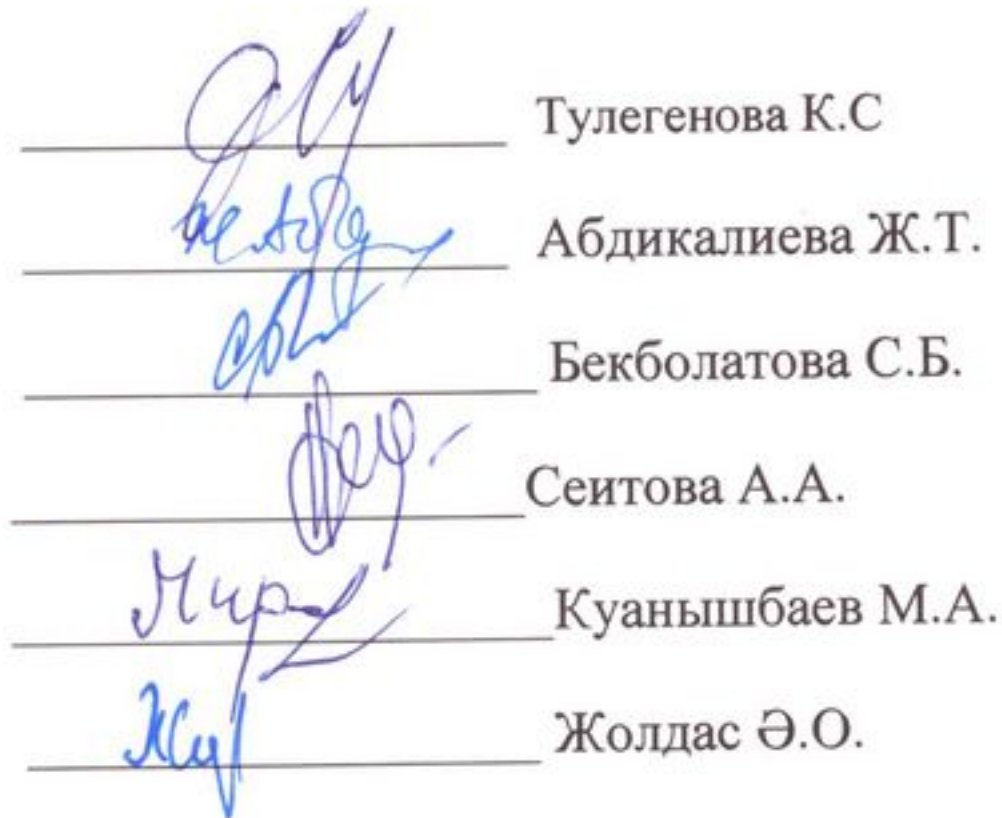 Тулегенова К.С
Абдикалиева Ж.Т.
Бекболатова С.Б.
Сеитова А.А.
Куанышбаев М.А.
Жолдас Ә.О.